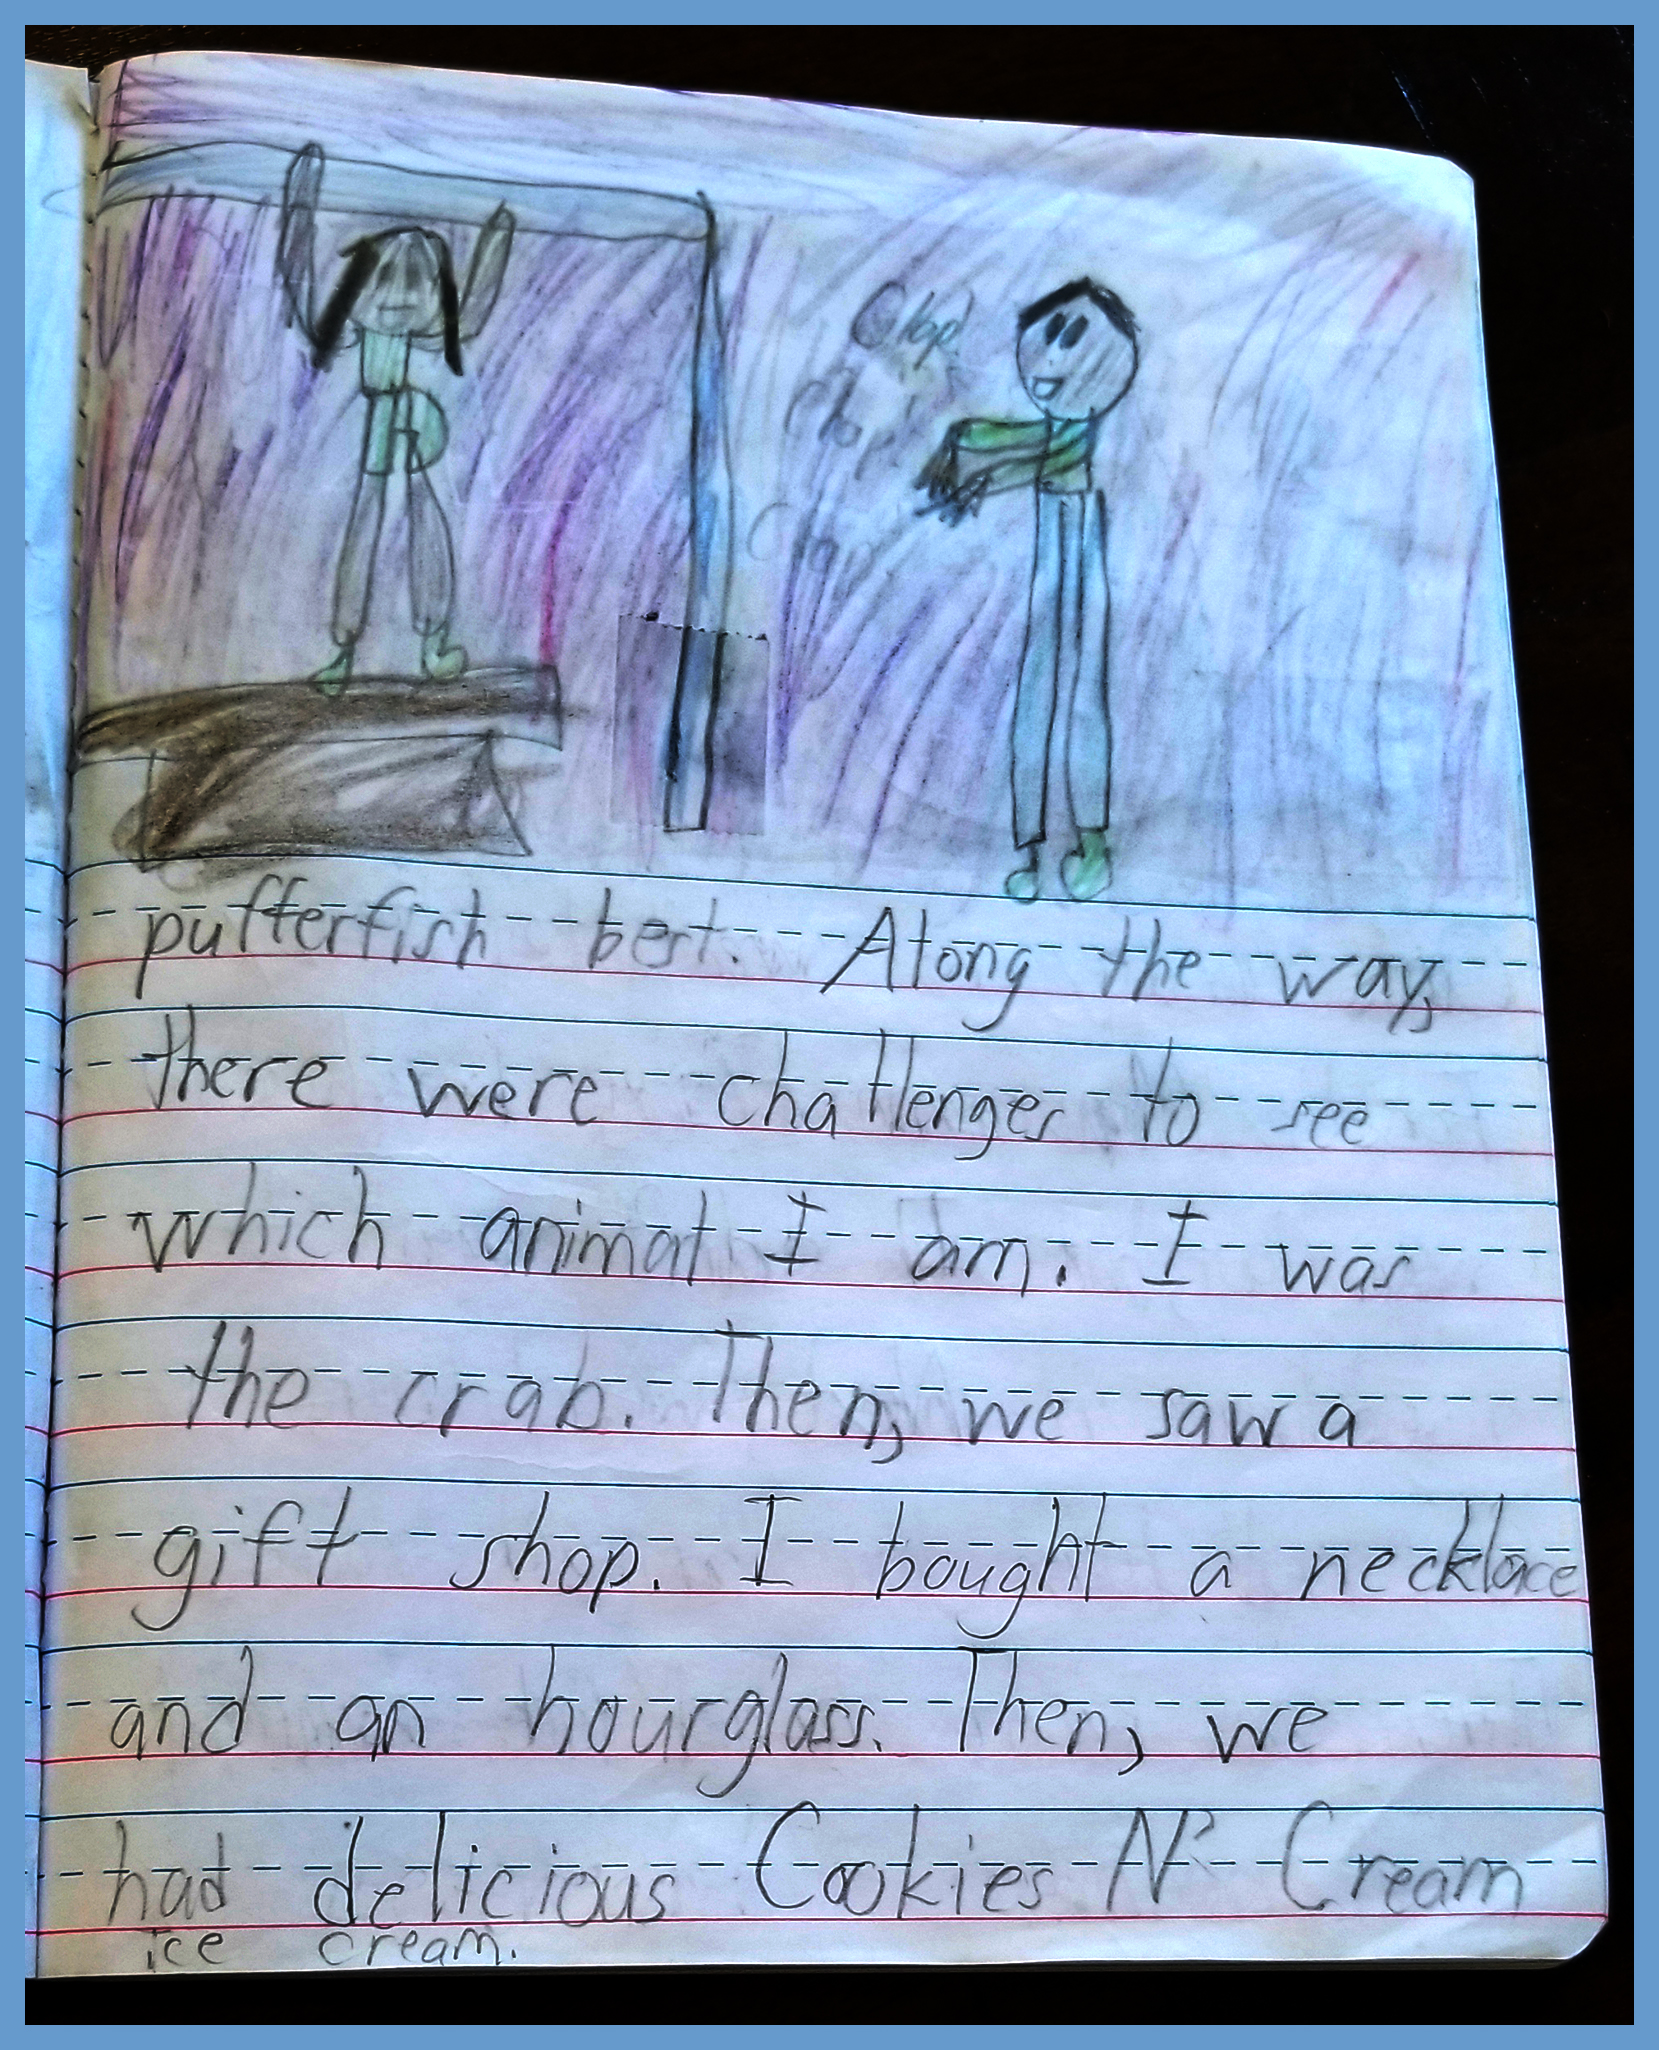 Clap!
Clap!
Clap!
pufferfish best. Along the way,
there were challenges to see
which animal I am. I was
the crab. Then, we saw a
gift shop. I bought a necklace
and an hourglass. Then, we
had delicious Cookies N' Cream
ice cream.